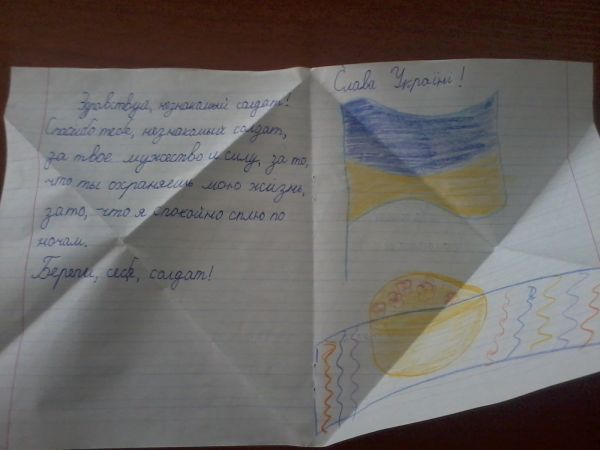 Здравствуй, незнакомый солдат!
Спасибо тебе, незнакомый солдат,
за твоё мужество и силу, за то,
что ты охраняешь мою жизнь,
за то, что я спокойно сплю по
ночам.
Береги, себе, солдат!
Слава Україні!